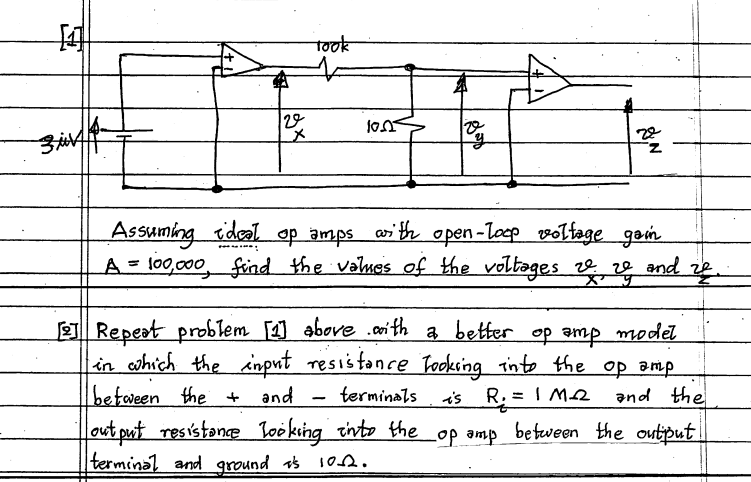 [1]
100k
+
-
+
-
3 μV
v
x
10Ω
v
y
v
z
Assuming ideal op amps with open-loop voltage gain
A = 100,000, find the values of the voltages v x, v y and v z.
[2] Repeat problem [1] above with a better op amp model
in which the input resistance looking into the op amp
between the + and - terminals is Ri = 1 MΩ and the
output resistance looking into the op amp between the output
terminal and ground is 10Ω.